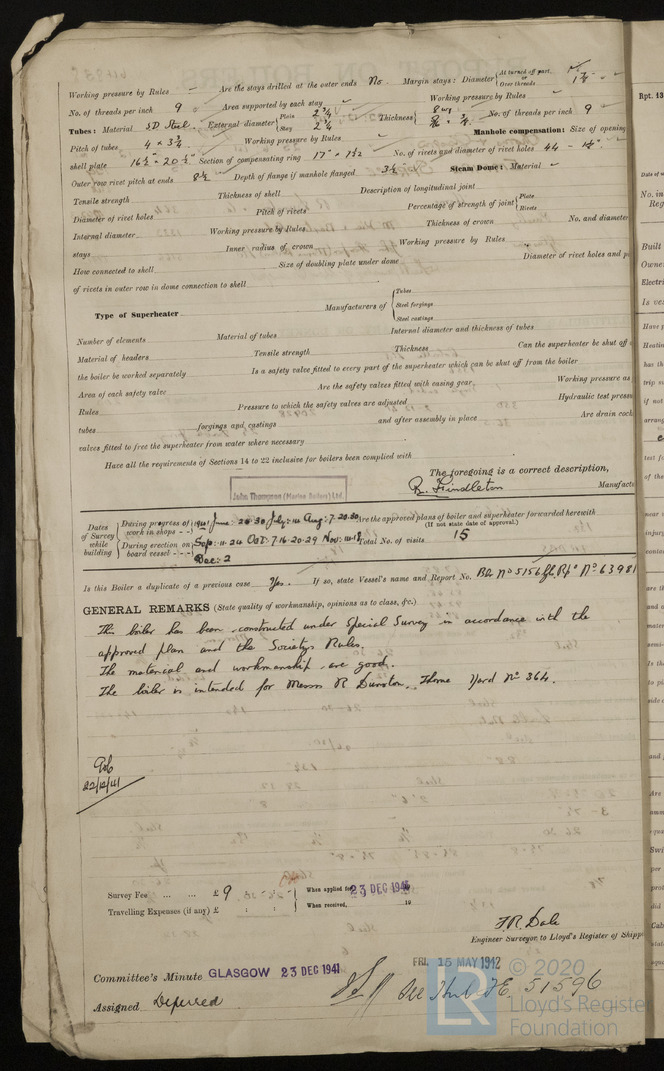 Working pressure by Rules Are the stays drilled at the outer ends No. Margin stays: Diameter At turned off part. or Over threads
No. of threads per inch 9 Area supported by each stay Working pressure by Rules
Tubes: Material SD Steel. External diameter Plain 2 3/4 Stay 2 1/4 Thickness 8 wg No. of threads per inch 9
Pitch of tubes 4 × 3 3/4 Working pressure by Rules Manhole compensation: Size of opening
shell plate 16 1/2 × 20 1/2" Section of compensating ring 17" × 1 1/2 No. of rivets and diameter of rivet holes 44 -
Outer row rivet pitch at ends 8 1/2 Depth of flange if manhole flanged 3 1/2 Steam Dome: Material
Tensile strength Thickness of shell Description of longitudinal joint
Diameter of rivet holes Pitch of rivets Percentage of strength of joint Plate Rivets
Internal diameter Working pressure by Rules Thickness of crown No. and diameter
stays Inner radius of crown Working pressure by Rules
How connected to shell Size of doubling plate under dome Diameter of rivet holes and
of rivets in outer row in dome connection to shell
Type of Superheater Manufacturers of Tubes Steel forgings Steel castings
Number of elements Material of tubes Internal diameter and thickness of tubes
Material of headers Tensile strength Thickness Can the superheater be shut off
the boiler be worked separately Is a safety valve fitted to every part of the superheater which can be shut off from the boiler
Area of each safety valve Are the safety valves fitted with easing gear Working pressure as
Rules Pressure to which the safety valves are adjusted Hydraulic test
tubes forgings and castings and after assembly in place Are drain
valves fitted to free the superheater from water where necessary
Have all the requirements of Sections 14 to 22 inclusive for boilers been complied with
The foregoing is a correct description,
John Thompson (Marine Boilers) Ltd. R. Findleton Manufact
Dates of Survey while building During progress of work in shops - - 1941 June: 20·30 July: 14 Aug: 7·20·30 Are the approved plans of boiler and superheater forwarded herewith
(If not state date of approval.)
During erection on board vessel - - - Sep: 11·24 Oct: 7·16·20·29 Nov: 11·18 Total No. of visits 15
Dec: 2
Is this Boiler a duplicate of a previous case Yes. If so, state Vessel's name and Report No. Blr No 5156 Rpt No 63981
GENERAL REMARKS (State quality of workmanship, opinions as to class, &c.)
This boiler has been constructed under Special Survey in accordance with the
approved plan and the Societys Rules.
The material and workmanship are good.
The boiler is intended for Messrs R Dunston, Thorne Yard No 364.
22/12/41
Survey Fee ... ... £ 9 : : When applied for 23 DEC 194
Travelling Expenses (if any) £ : : When received, 19
F.R. Dale
Engineer Surveyor to Lloyd's Register of Shipp
FRI. 15 MAY 1942
Committee's Minute GLASGOW 23 DEC 1941
Assigned Deferred
See Hul F.E. 51596
LR © 2020
Lloyd's Register
Foundation
Rpt. 13
Date of
No. in
Reg
Built
Owne
Electri
Is ves